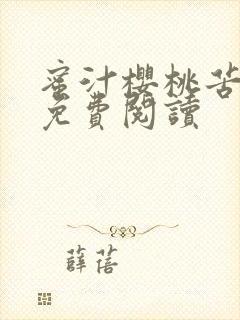 蜜汁櫻桃苦
免費閱讀
薛蓓